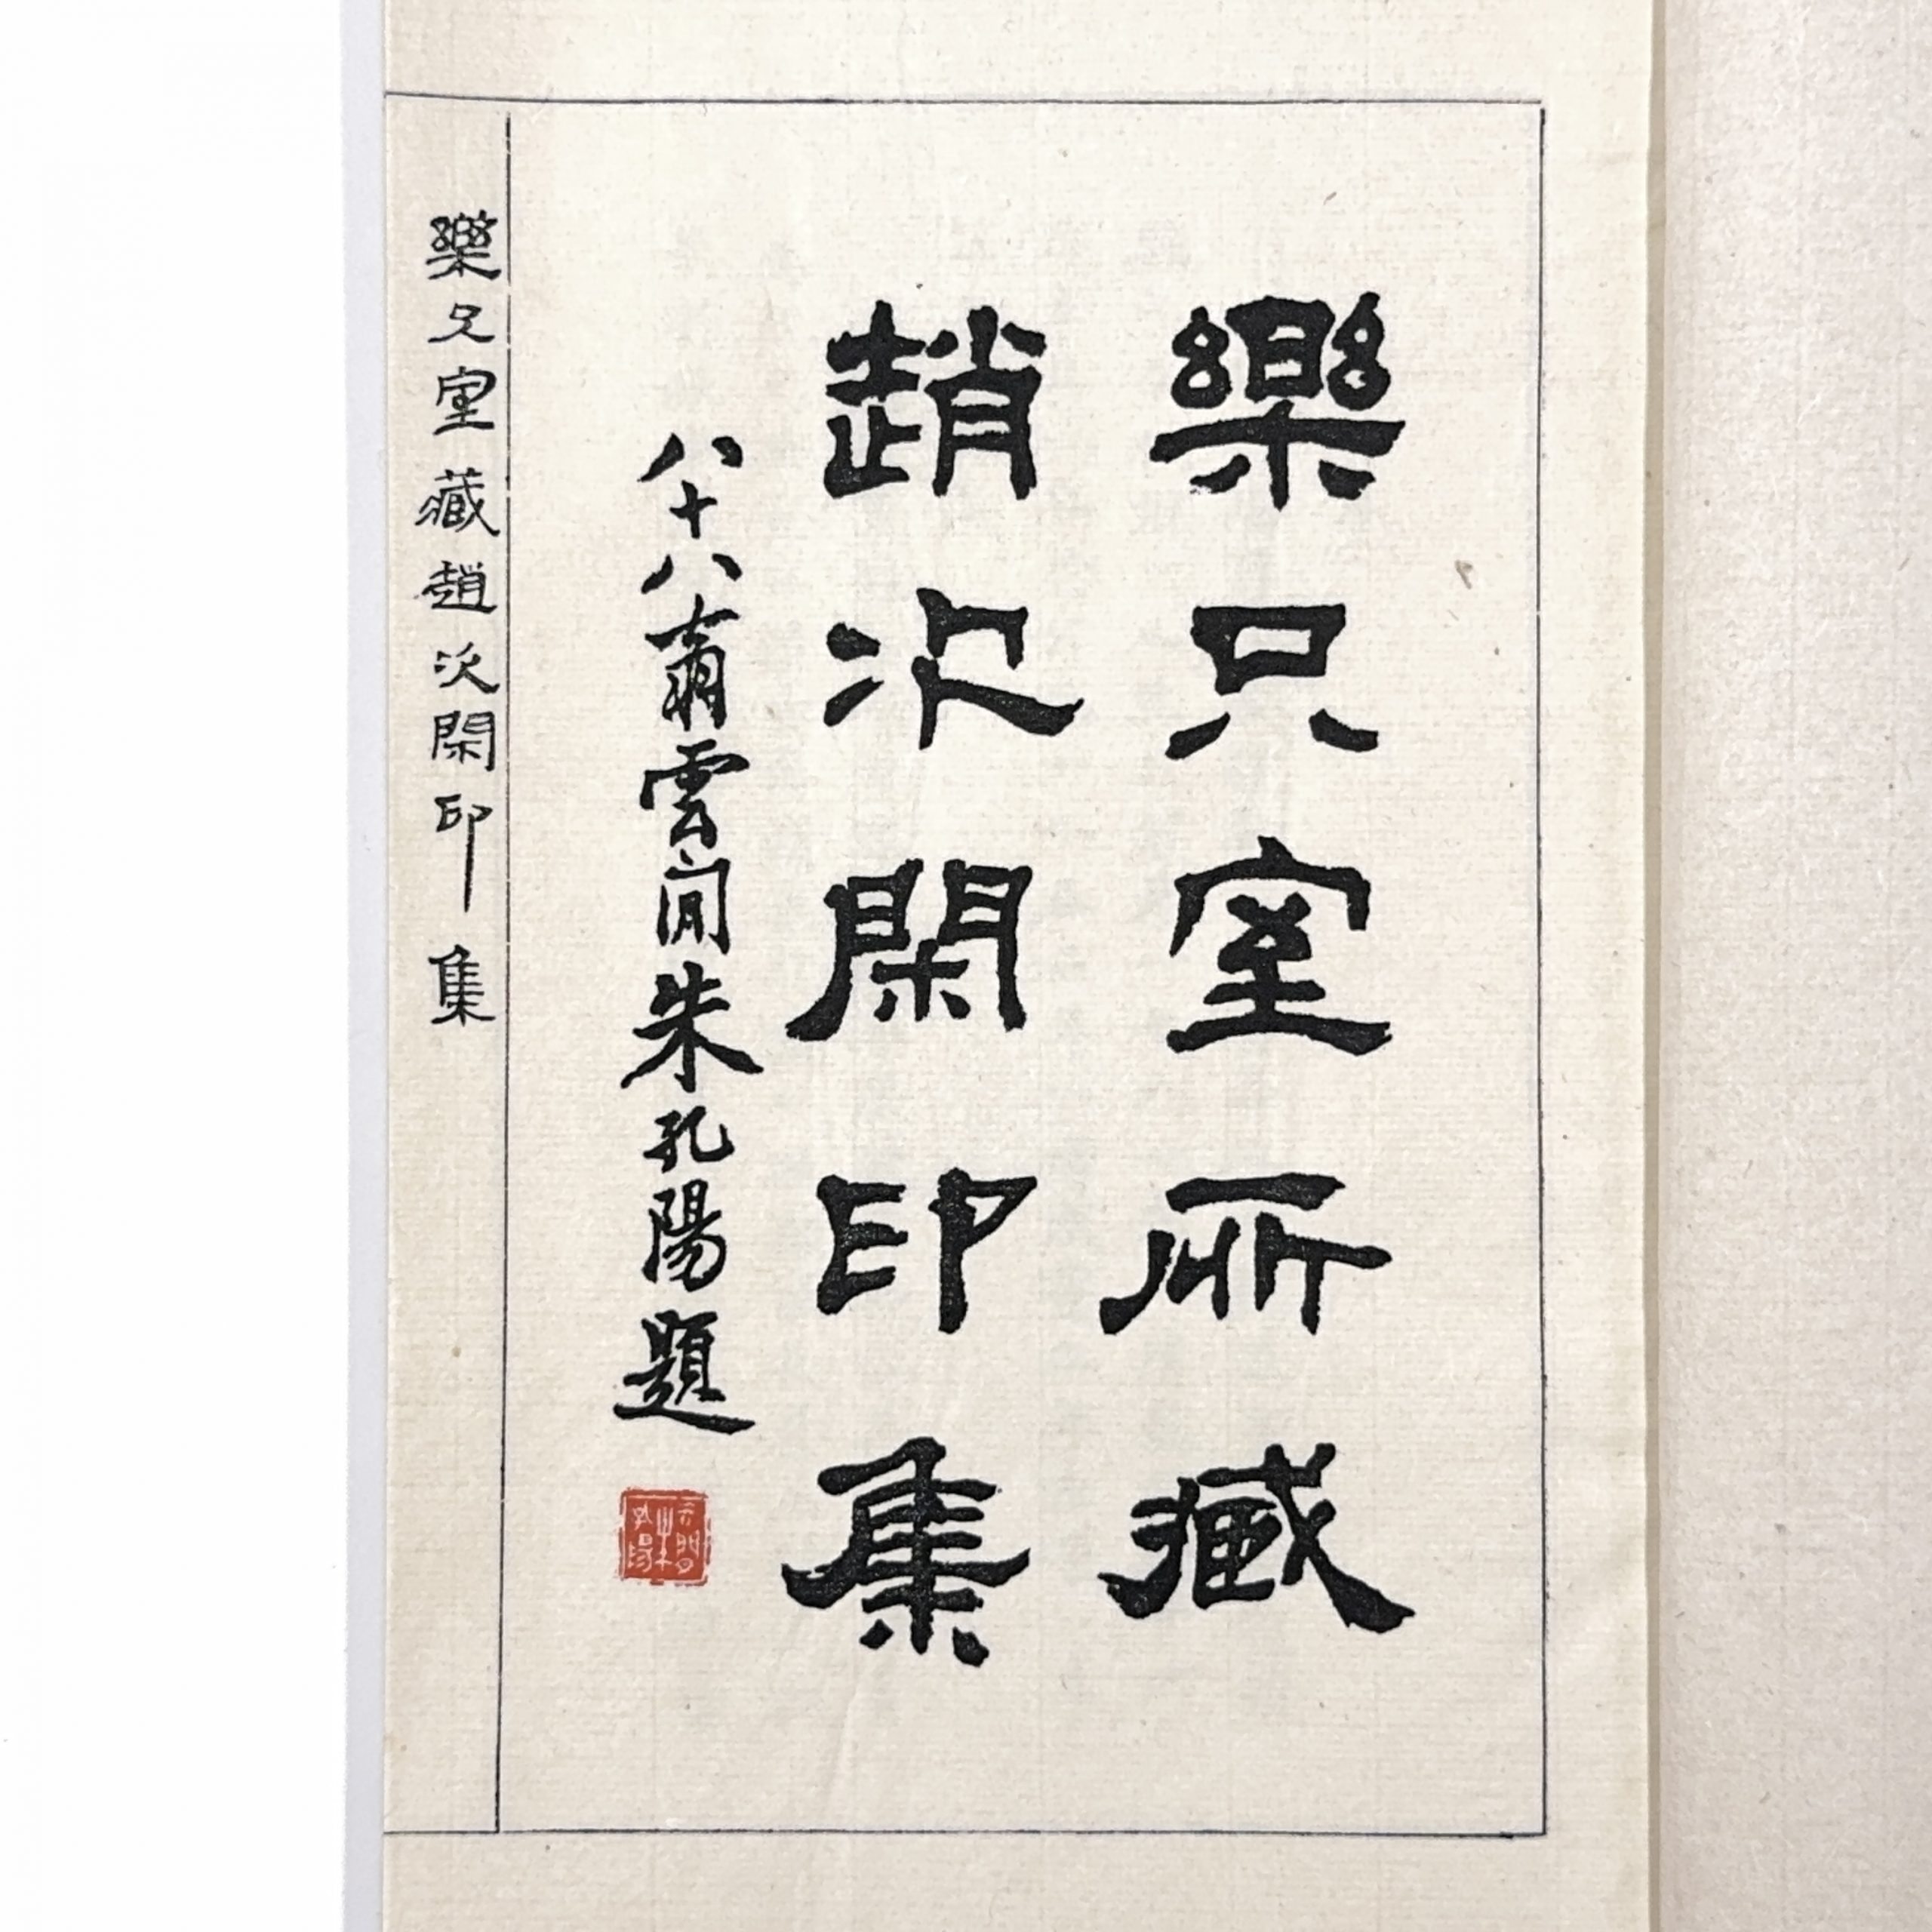 樂只室所藏
趙次閑印集
八十八翁雲間朱孔陽題
雲間朱孔陽
樂只室藏趙次閑印集